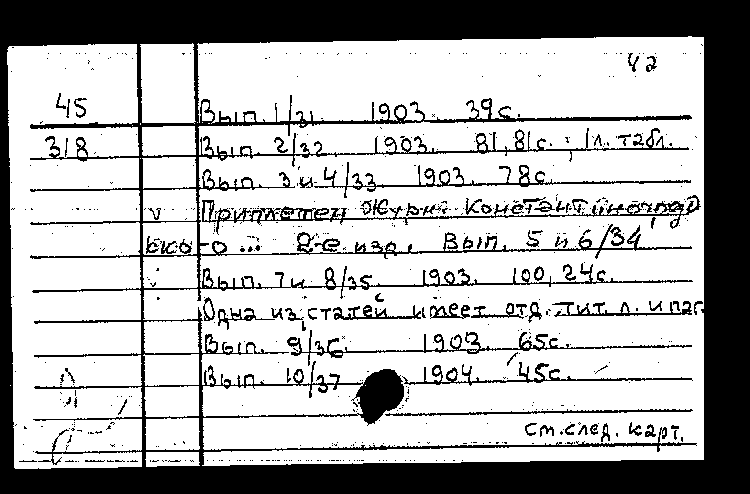 42
45 Вып. 1/31. 1903. 39с.
318 Вып. 2/32. 1903. 81, 81с.; 1л. табл.
Вып. 3 и 4/33. 1903. 78с.
v Приплетен Журн. Константиноград
ско-о ... 2-е изд. Вып. 5 и 6/34,
Вып. 7 и 8/35. 1903. 100, 24с.
Одна из статей имеет отд. тит. л. и паг.
Вып. 9/36. 1903. 65с.
Вып. 10/37 1904. 45с.
См. след. карт.